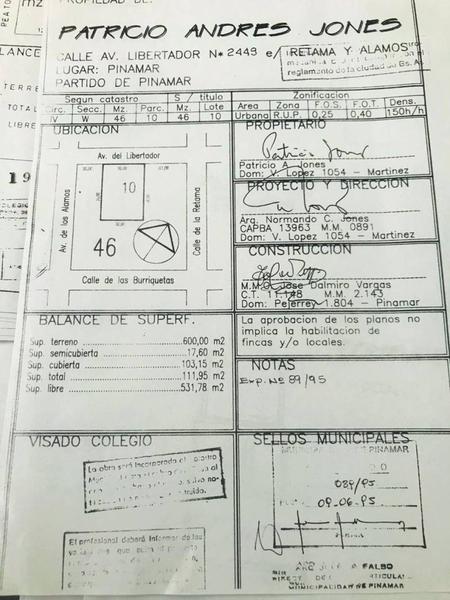 PROPIEDAD DE:
PATRICIO ANDRES JONES
CALLE AV. LIBERTADOR Nº 2449 e/ RETAMA Y ALAMOS
LUGAR: PINAMAR
PARTIDO DE PINAMAR
reglamento de la ciudad de Bs. As.
Segun catastro S / titulo Zonificacion
Circ. Secc. Mz. Parc. Mz. Lote Area Zona F.O.S. F.O.T. Dens.
IV W 46 10 46 10 Urbana R.U.P. 0,25 0,40 150h/h
UBICACION
Av. del Libertador
10
Av. de los Alamos
Calle de la Retama
46
Calle de las Burriquetas
PROPIETARIO
Patricio A. Jones
Dom: V. Lopez 1054 - Martinez
PROYECTO Y DIRECCION
Arq. Normando C. Jones
CAPBA 13963 M.M. 0891
Dom: V. Lopez 1054 - Martinez
CONSTRUCCION
M.M.O. Jose Dalmiro Vargas
C.T. 11.148 M.M. 2.143
Dom: Pejerrey 1.804 - Pinamar
BALANCE DE SUPERF.
Sup. terreno 600,00 m2
Sup. semicubierta 17,60 m2
Sup. cubierta 103,15 m2
Sup. total 111,95 m2
Sup. libre 531,78 m2
La aprobacion de los planos no
implica la habilitacion de
fincas y/o locales.
NOTAS
Exp. Nº 89/95
VISADO COLEGIO
La obra será incorporada al catastro
El profesional deberá informar de los
SELLOS MUNICIPALES
PINAMAR
089/95
09.06.95
FALBO
MUNICIPALIDAD DE PINAMAR
BALANCE
TERRE
TOTAL
LIBRE
19